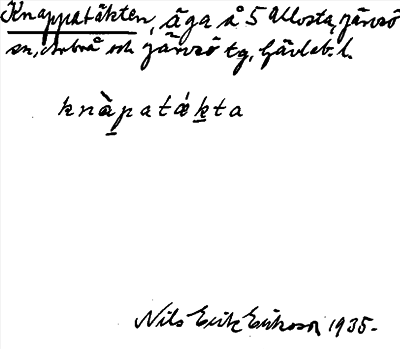 Knappatäkten, äga å 5 Allosta, Järvsö
sn, Arbrå och Järvsö tg, Gävleb. l.
knàpatákta
Nils Erik Eriksson 1935.